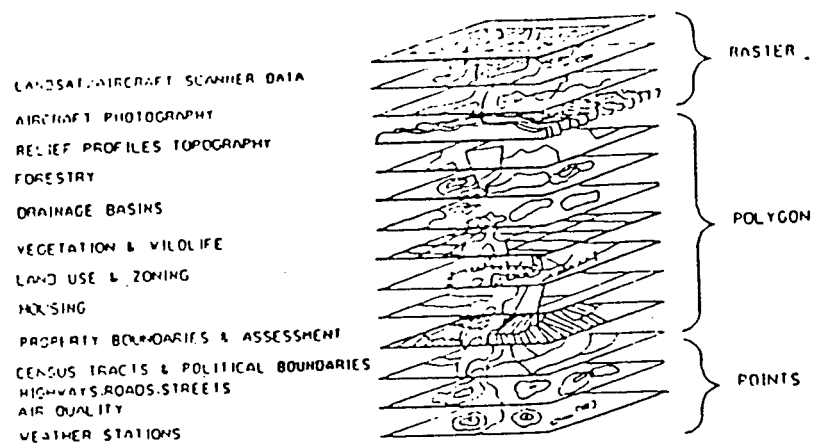 LANDSAT/AIRCRAFT SCANNER DATA
AIRCRAFT PHOTOGRAPHY
RELIEF PROFILES TOPOGRAPHY
FORESTRY
DRAINAGE BASINS
VEGETATION & WILDLIFE
LAND USE & ZONING
HOUSING
PROPERTY BOUNDARIES & ASSESSMENT
CENSUS TRACTS & POLITICAL BOUNDARIES
HIGHWAYS.ROADS.STREETS
AIR QUALITY
WEATHER STATIONS
RASTER
POLYGON
POINTS